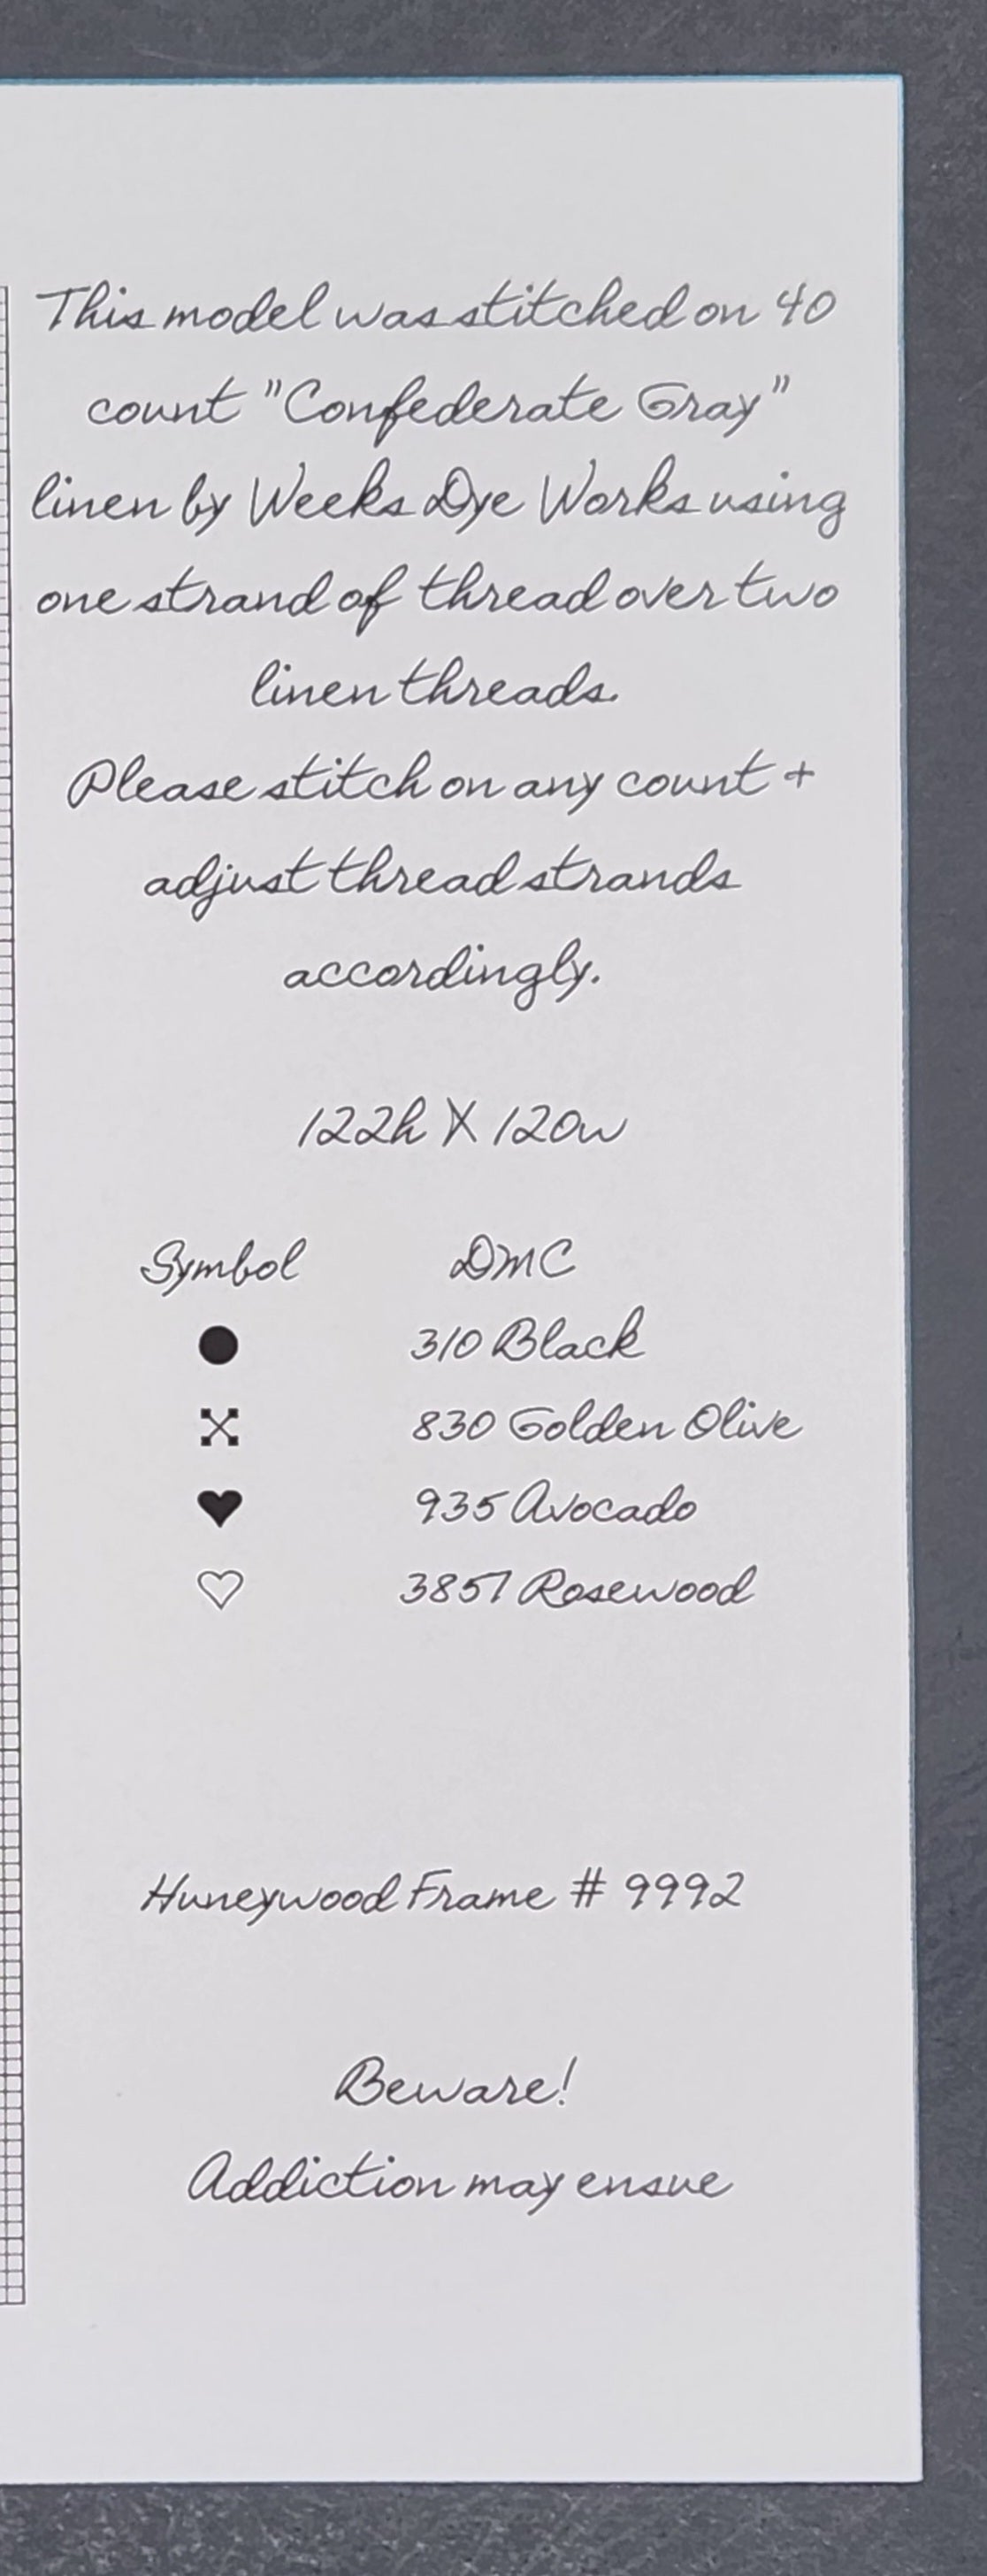 This model was stitched on 40
count "Confederate Gray"
linen by Weeks Dye Works using
one strand of thread over two
linen threads.
Please stitch on any count +
adjust thread strands
accordingly.
122h X 120w
Symbol DMC
310 Black
830 Golden Olive
935 Avocado
3857 Rosewood
Huneywood Frame # 9992
Beware!
Addiction may ensue